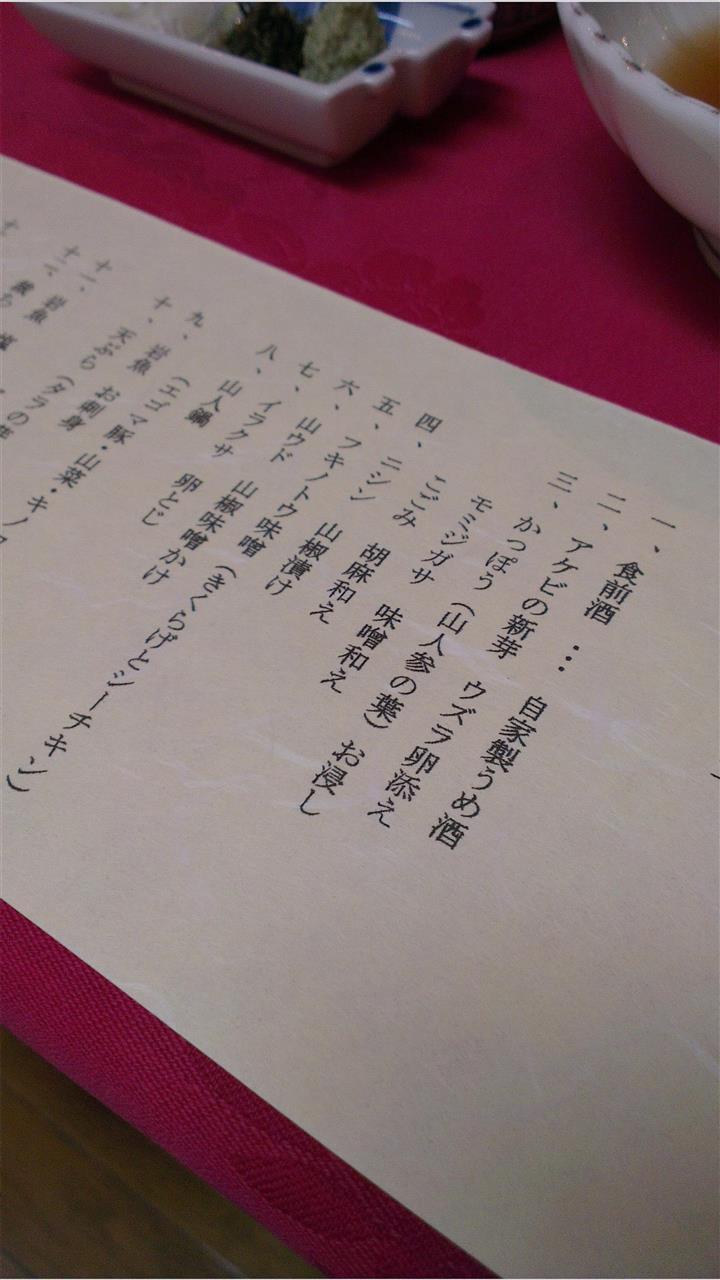 一、食前酒 … 自家製うめ酒
二、アケビの新芽 ウズラ卵添え
三、かっぽう(山人参の葉)お浸し
モミジガサ 味噌和え
こごみ 胡麻和え
四、ニシン 山椒漬け
五、フキノトウ味噌(きくらげとシーチキン)
六、山ウド 山椒味噌かけ
七、イラクサ 卵とじ
八、山人鍋
(エゴマ豚・山菜・キノ
九、岩魚 お刺身
十、天ぷら(タラの
十一、岩魚
十二、